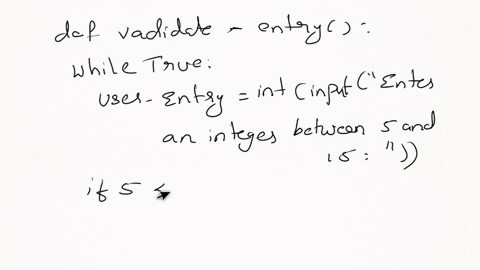 def vadidate - entry():
while True:
user-Entry = int (input ("Enter
an integer between 5 and
15 : "))
if 5 <